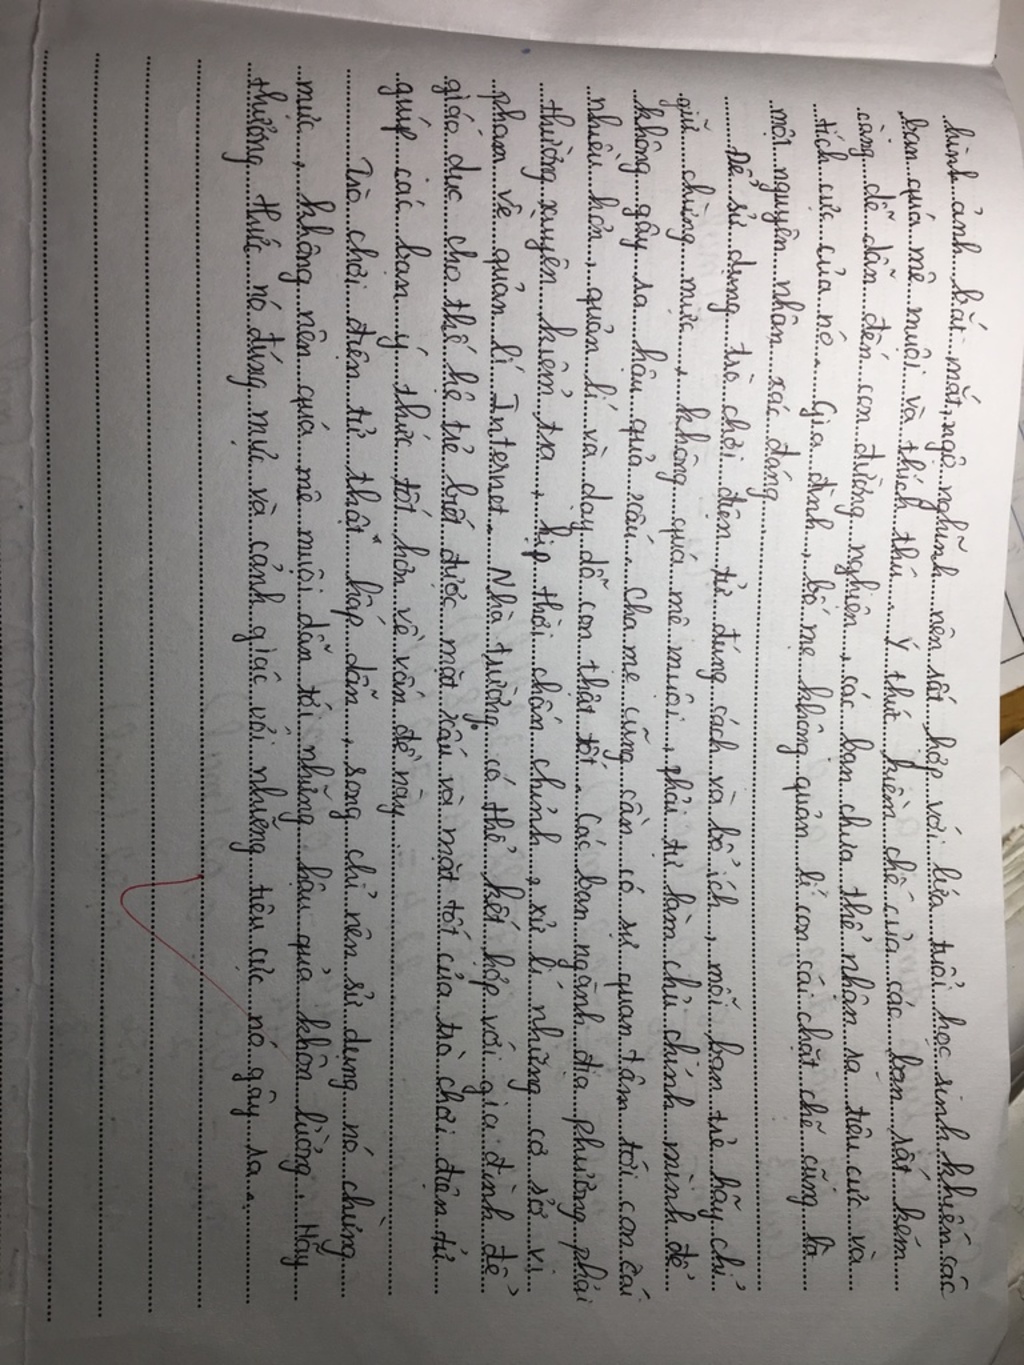 hình ảnh bắt mắt, ngộ nghĩnh nên rất hợp với lứa tuổi học sinh khiến các
bạn quá mê muội và thích thú. Ý thức kiềm chế của các bạn rất kém
càng dễ dẫn đến con đường nghiện, các bạn chưa thể nhận ra tiêu cực và
tích cực của nó. Gia đình, bố mẹ không quản lí con cái chặt chẽ cũng là
một nguyên nhân xác đáng.
Để sử dụng trò chơi điện tử đúng cách và bổ ích, mỗi bạn trẻ hãy chỉ
giữ chừng mực, không quá mê muội, phải tự làm chủ chính mình để
không gây ra hậu quả xấu. Cha mẹ cũng cần có sự quan tâm tới con cái
nhiều hơn, quản lí và dạy dỗ con thật tốt. Các ban ngành địa phương phải
thường xuyên kiểm tra, kịp thời chấn chỉnh, xử lí những cơ sở vi
phạm về quản lí Internet. Nhà trường có thể kết hợp với gia đình để
giáo dục cho thế hệ trẻ biết được mặt xấu và mặt tốt của trò chơi điện tử
giúp các bạn ý thức tốt hơn về vấn đề này.
Trò chơi điện tử thật hấp dẫn, song chỉ nên sử dụng nó chừng
mực, không nên quá mê muội dẫn tới những hậu quả khôn lường. Hãy
thưởng thức nó đúng mực và cảnh giác với những tiêu cực nó gây ra.